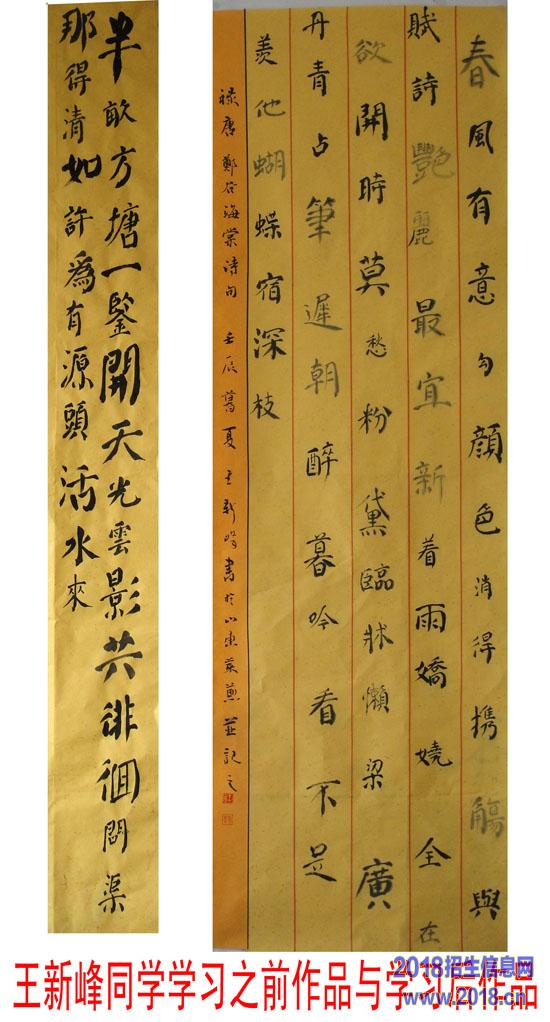 半畝方塘一鑒開天光雲影共徘徊問渠
那得清如許為有源頭活水來
春風有意勻顔色消得携觴與
賦詩艷麗最宜新着雨嬌嬈全在
欲開時莫愁粉黛臨牀懶梁廣
丹青占筆遲朝醉暮吟看不足
羨他蝴蝶宿深枝
禄唐鄭谷海棠诗句壬辰夏王新峰書於山東萊蕪並記之
王新峰同学学习之前作品与学习后作品
2018招生信息网
www.2018.cn